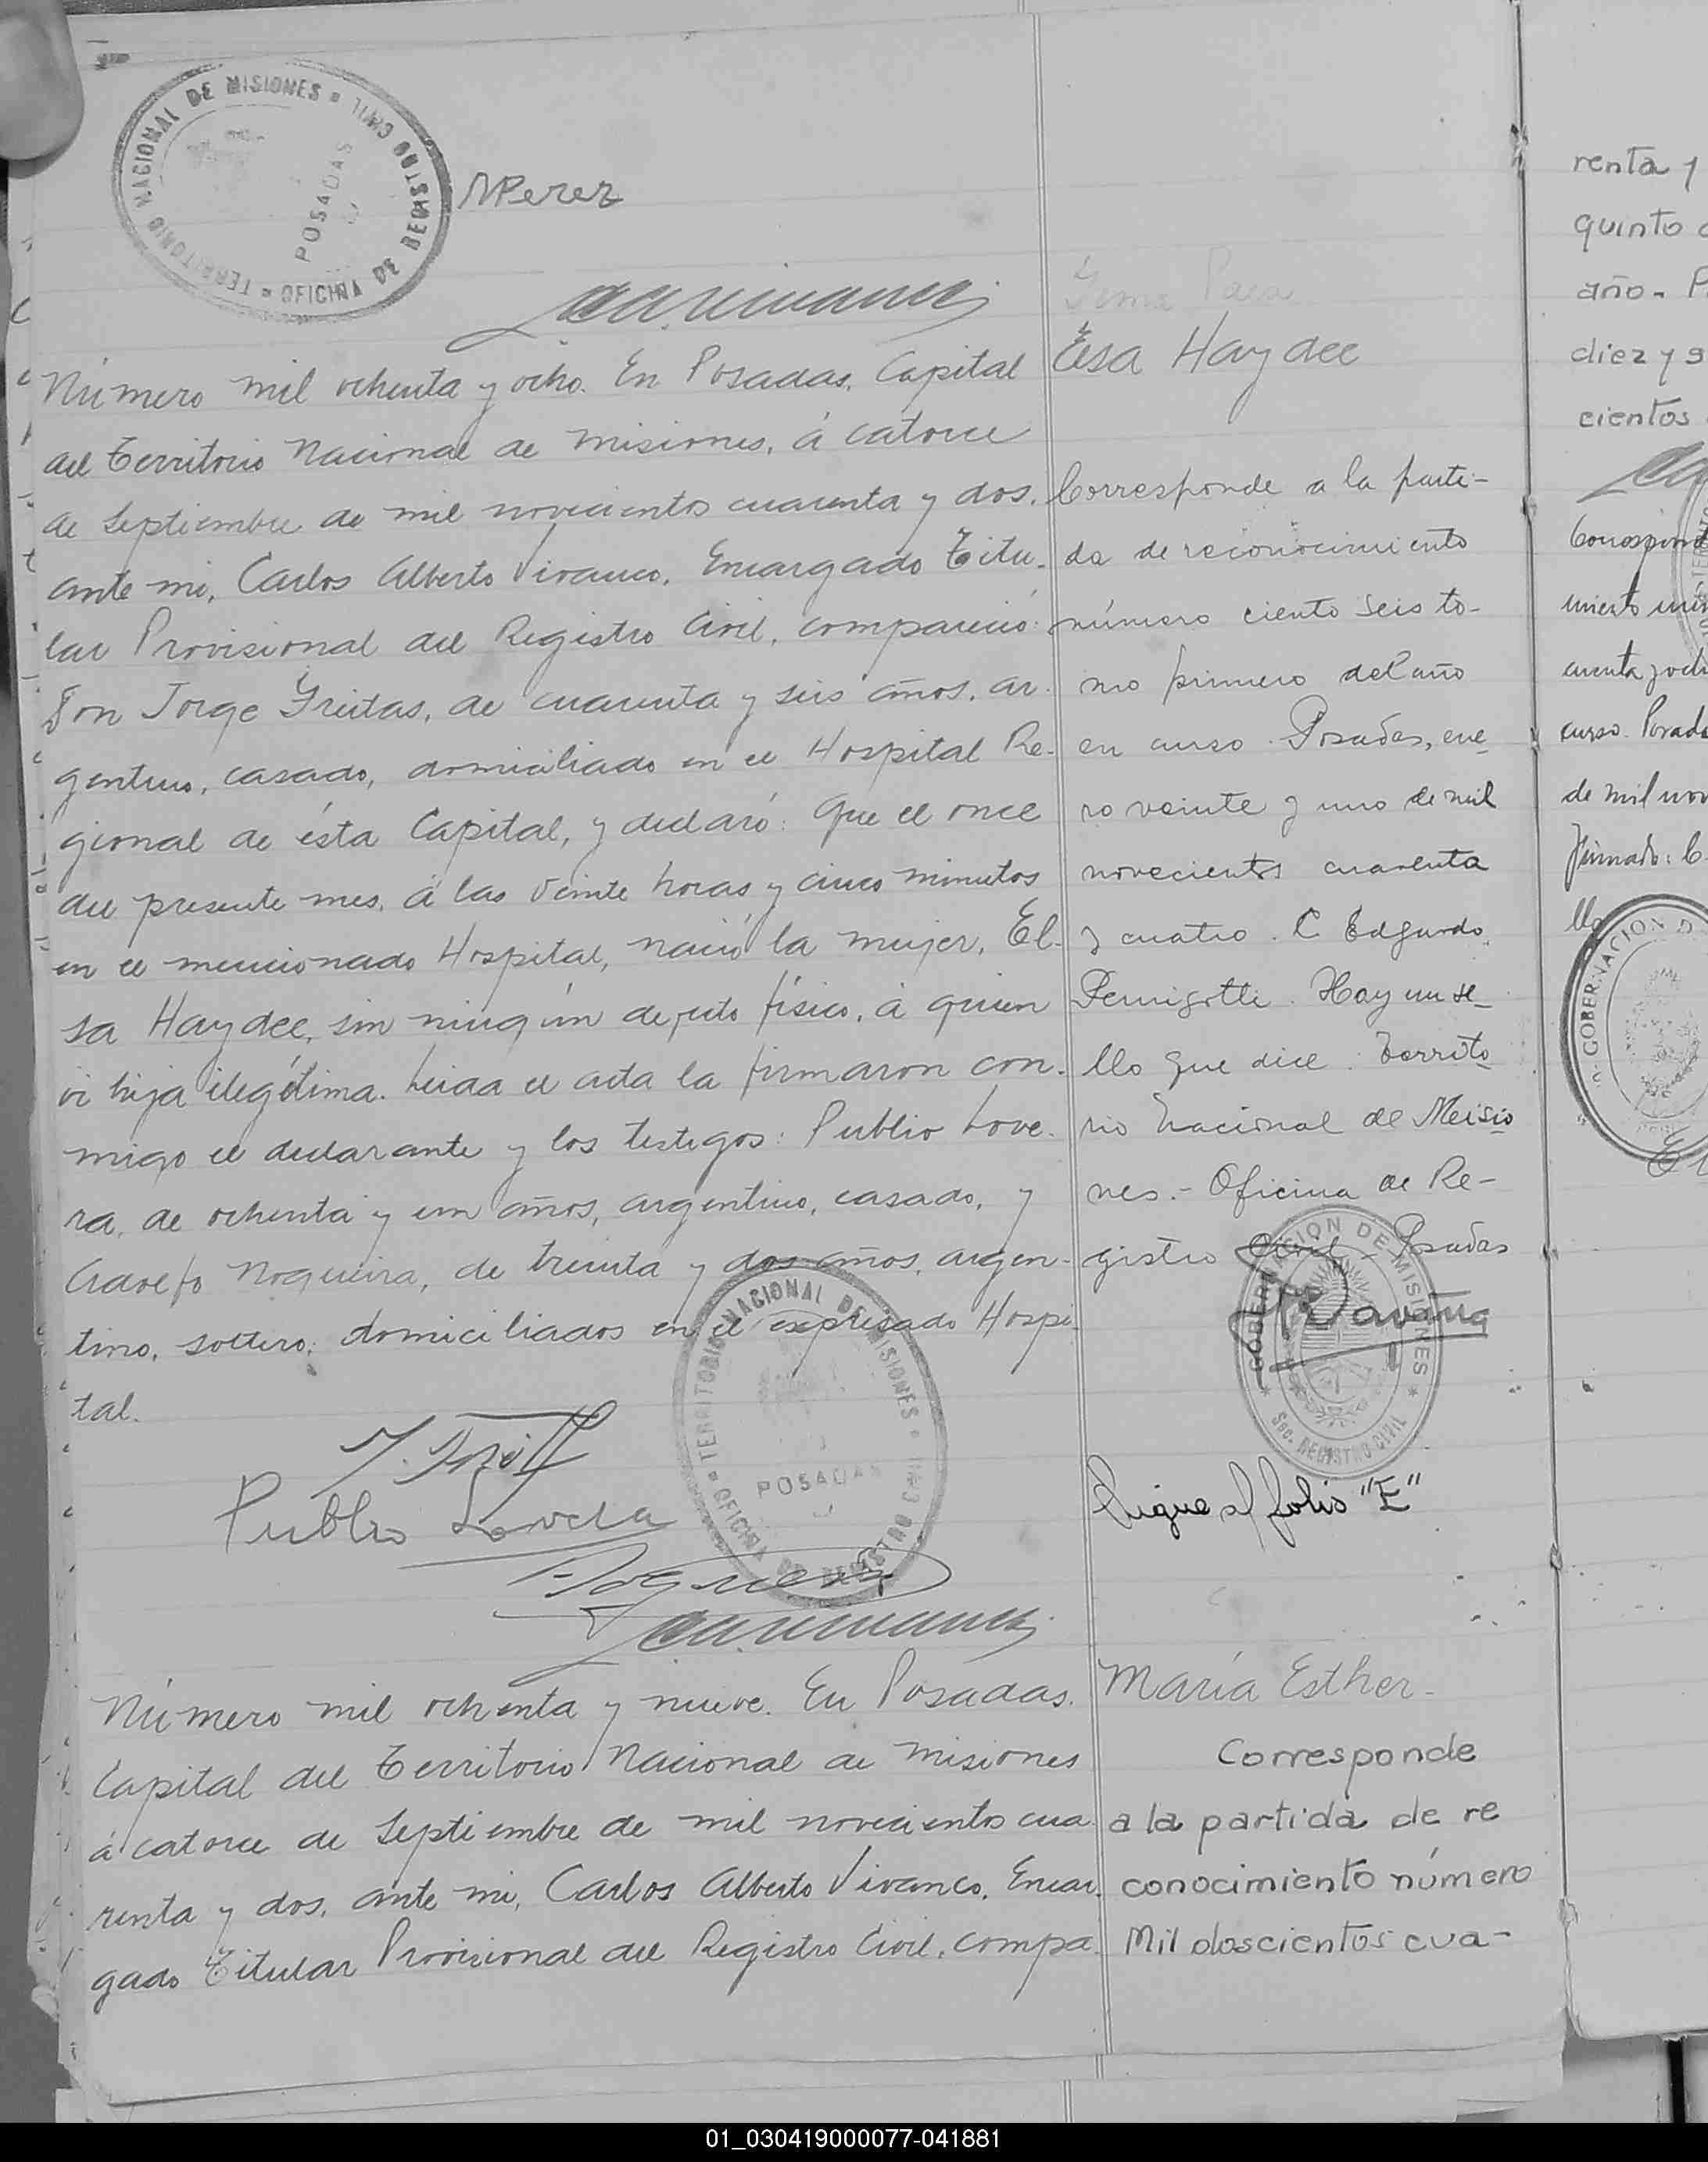 TERRITORIO NACIONAL DE MISIONES
OFICINA DE REGISTRO CIVIL
POSADAS
NPerez
Número mil ochenta y ocho. En Posadas, Capital
del Territorio Nacional de Misiones, á catorce
de Septiembre de mil novecientos cuarenta y dos,
ante mi, Carlos Alberto Vivanco, Encargado Titu-
lar Provisional del Registro Civil, compareció:
Don Jorge Freitas, de cuarenta y seis años, ar-
gentino, casado, domiciliado en el Hospital Re-
gional de ésta Capital, y declaró: Que el once
del presente mes, á las veinte horas y cinco minutos
en el mencionado Hospital, nació la mujer, El-
sa Haydee, sin ningún defecto físico, á quien
vi hija ilegítima. Leida el acta la firmaron con-
migo el declarante y los testigos: Publio Love-
ra, de ochenta y un años, argentino, casado, y
Nogueira, de treinta y dos años, argen-
tino, soltero; domiciliados en el expresado Hospi-
tal.
Publio Lovera
TERRITORIO NACIONAL DE MISIONES
OFICINA DE REGISTRO CIVIL
POSADAS
Número mil ochenta y nueve. En Posadas,
Capital del Territorio Nacional de Misiones
á catorce de Septiembre de mil novecientos cua
renta y dos, ante mi, Carlos Alberto Vivanco, Encar-
gado Titular Provisional del Registro Civil, compa-
Elsa Haydee
Corresponde a la parti-
da de reconocimiento
número ciento seis to-
mo primero del año
en curso. Posadas, ene-
ro veinte y uno de mil
novecientos cuarenta
y cuatro. C Edgardo
Hay un se-
llo que dice: Territo
rio Nacional de Misio
nes.- Oficina de Re-
gistro Civil - Posadas
GOBERNACION DE MISIONES
Sec. REGISTRO CIVIL
Sigue a/ folio "E"
María Esther-
Corresponde
a la partida de re
conocimiento número
Mil doscientos cua-
renta y
quinto
año-
diez y
cientos
cuenta y
curso.
de mil
Firmado: C.
llo
GOBERNACION D
01_030419000077-041881